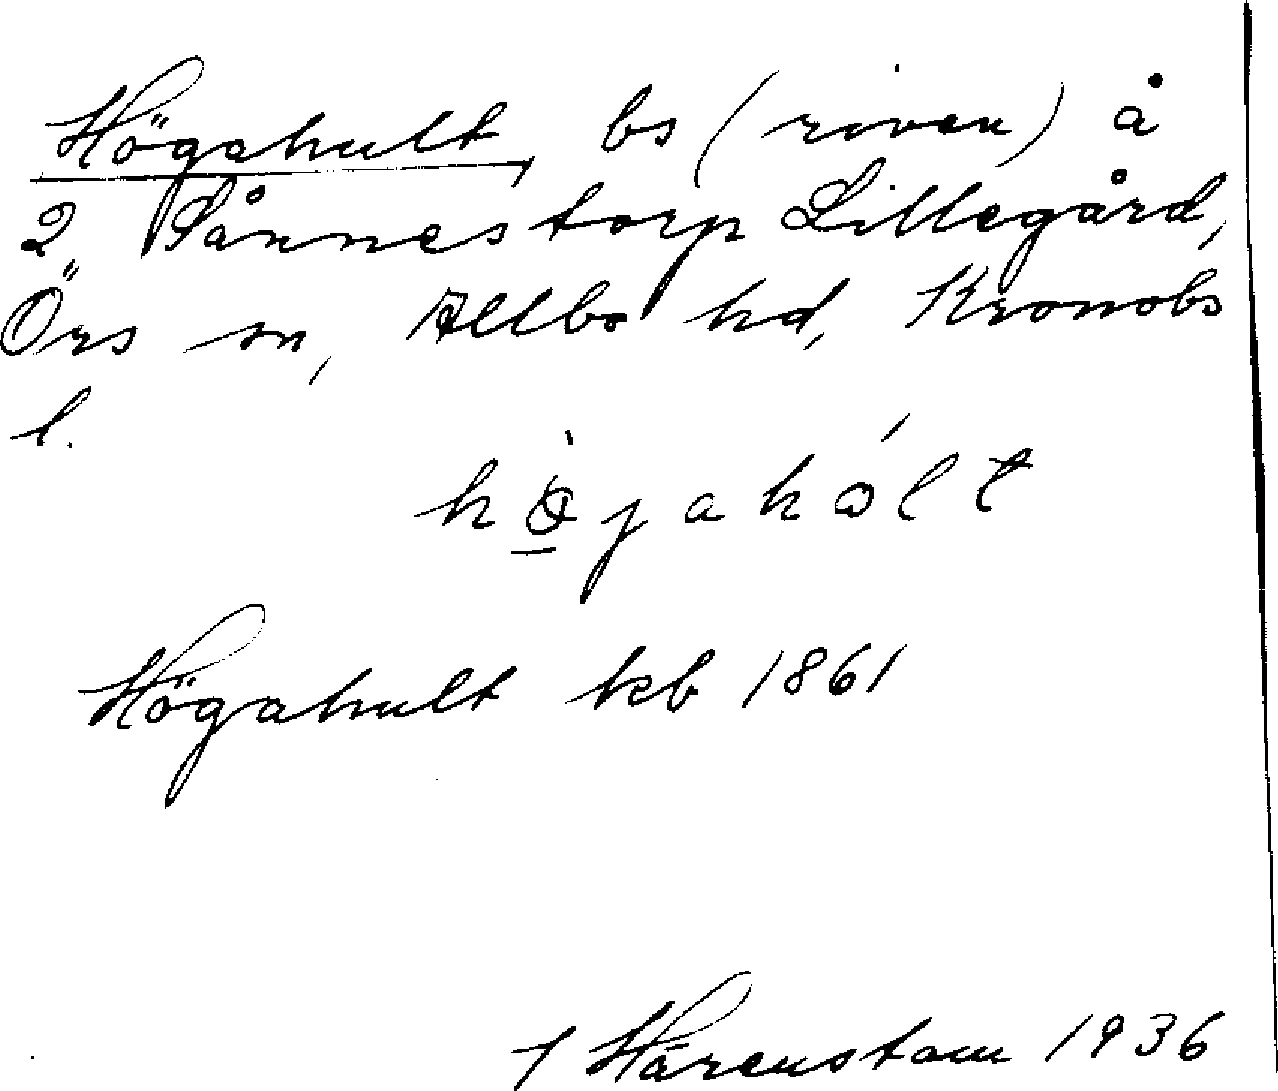 Högahult, bs (riven) å
2 Sånnestorp Lillegård,
Örs sn, Allbo hd, Kronobs
l.
högahólt
Högahult kb 1861
Härenstam 1936